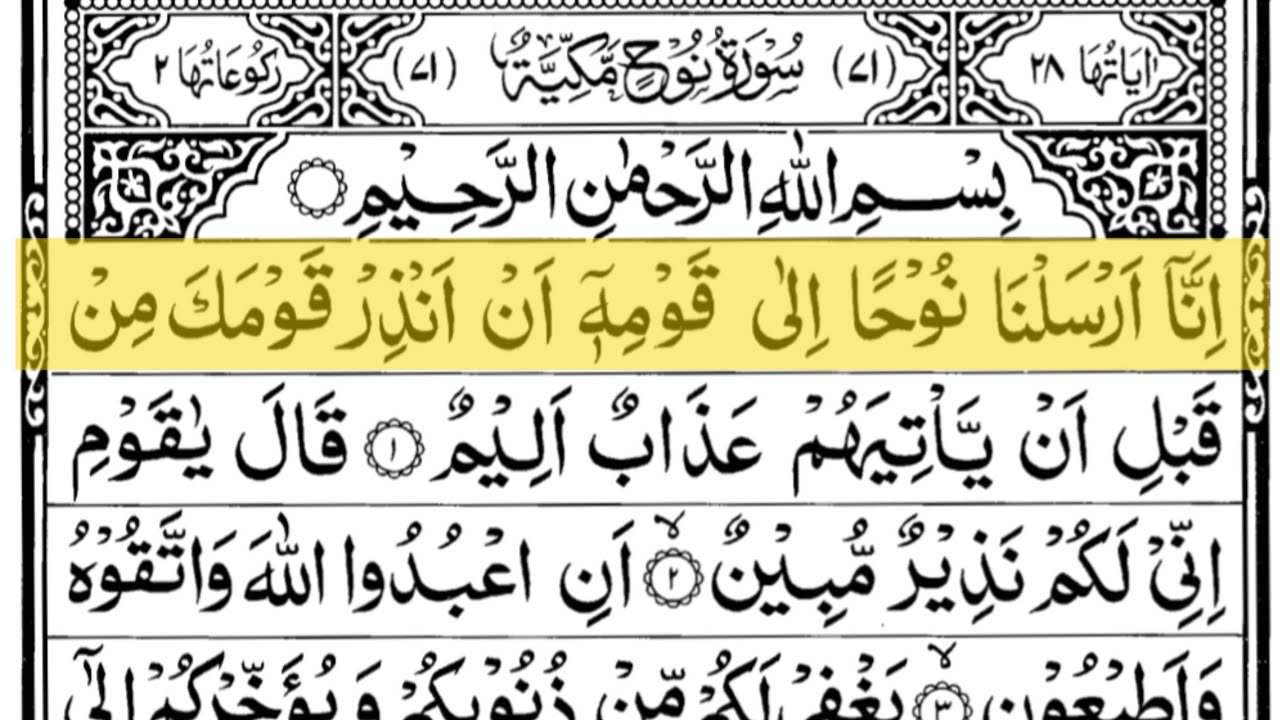 اٰيَاتُهَا ٢٨ (٧١) سُوْرَةُ نُوْحٍ مَّكِّيَّةٌ (٧١) رُكُوْعَاتُهَا ٢
بِسْمِ اللّٰهِ الرَّحْمٰنِ الرَّحِيْمِ
اِنَّاۤ اَرْسَلْنَا نُوْحًا اِلٰى قَوْمِهٖۤ اَنْ اَنْذِرْ قَوْمَكَ مِنْ
قَبْلِ اَنْ يَّاْتِيَهُمْ عَذَابٌ اَلِيْمٌ ١ قَالَ يٰقَوْمِ
اِنِّيْ لَكُمْ نَذِيْرٌ مُّبِيْنٌ ۙ ٢ اَنِ اعْبُدُوا اللّٰهَ وَاتَّقُوْهُ
وَاَطِيْعُوْنِ ۙ ٣ يَغْفِرْ لَكُمْ مِّنْ ذُنُوْبِكُمْ وَيُؤَخِّرْكُمْ اِلٰۤى